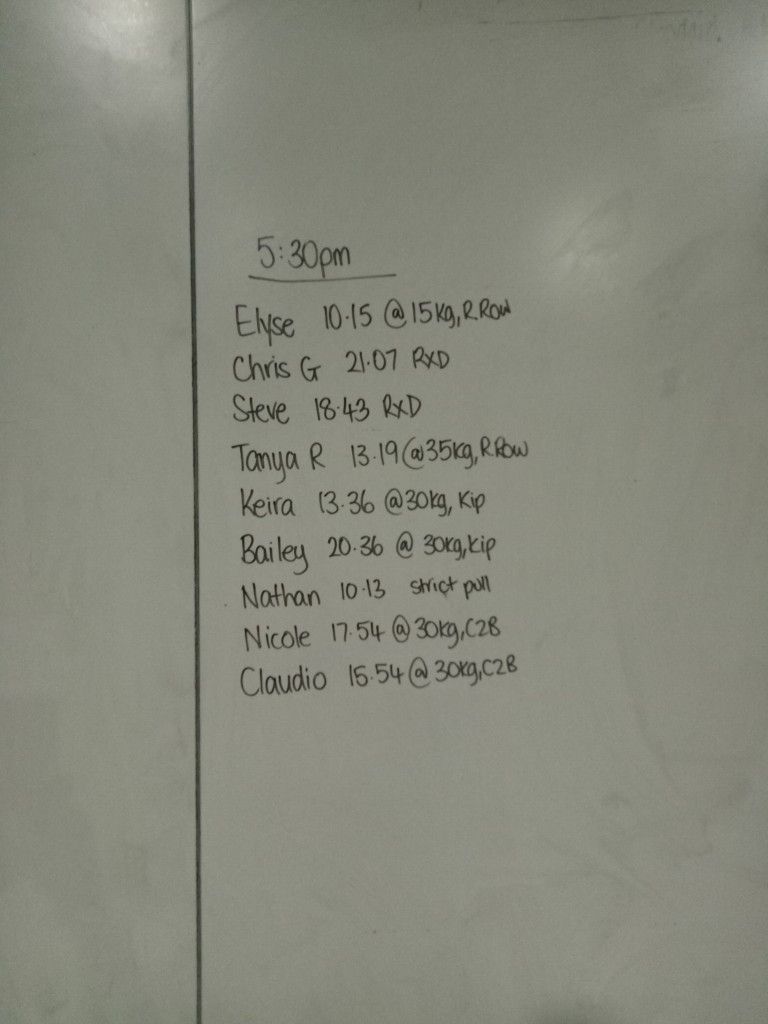 5:30pm
Elyse 10.15 @15kg, R.Row
Chris G 21.07 RXD
Steve 18.43 RxD
Tanya R 13.19@35kg, R.Row
Keira 13.36 @30kg, Kip
Bailey 20.36 @ 30kg, Kip
Nathan 10.13 strict pull
Nicole 17.54 @30kg, C2B
Claudio 15.54@30kg, C2B